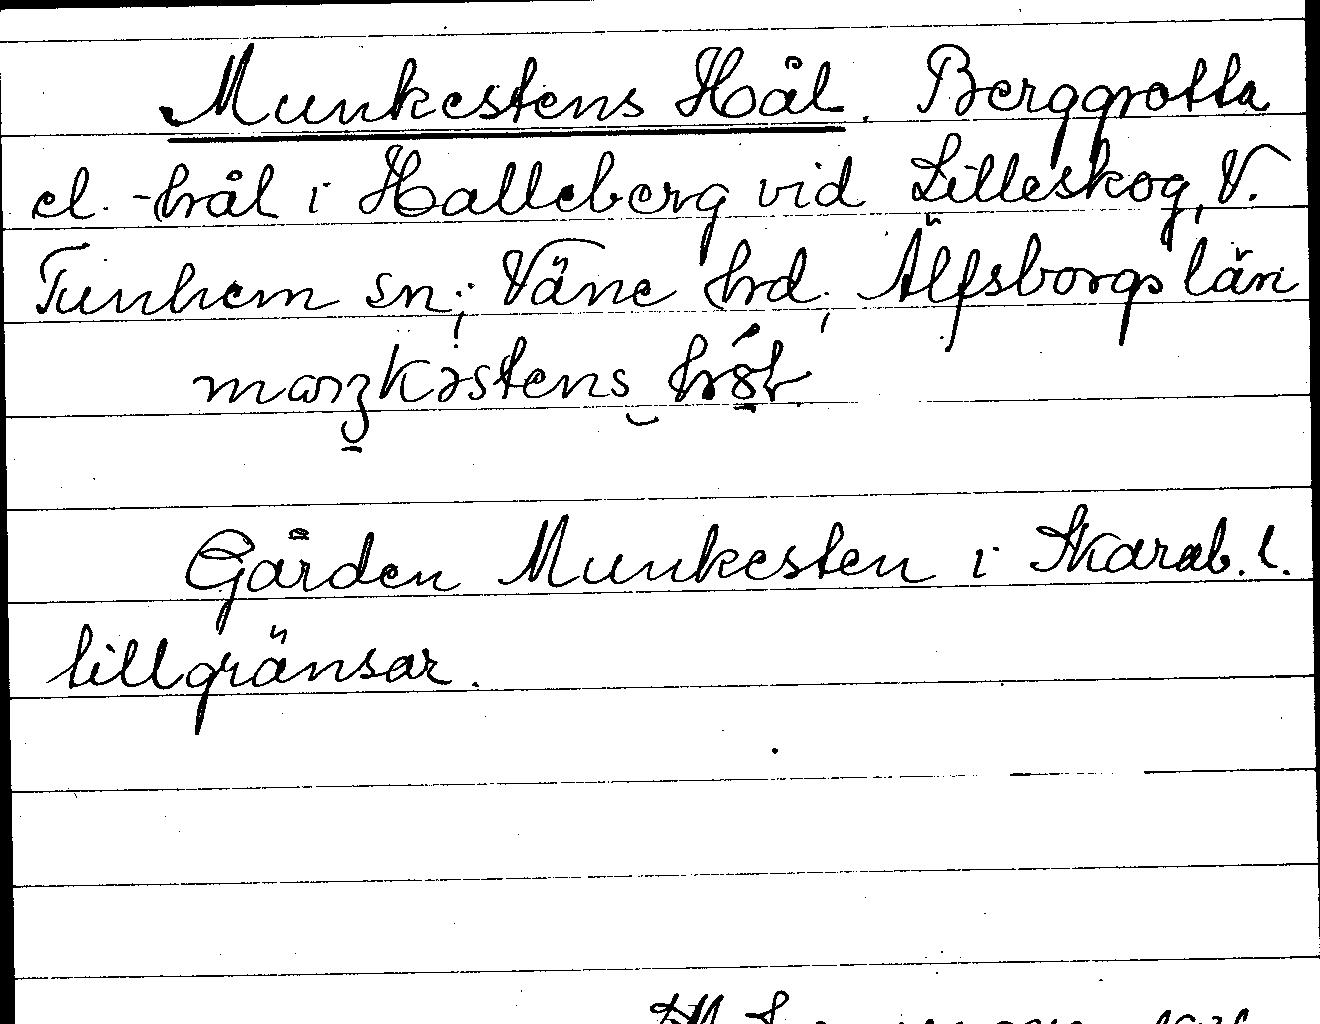 Munkestens Hål. Berggrotta
el. -hål i Halleberg vid Lilleskog, V.
Tunhem sn; Väne hrd, Älfsborgs län
Gården Munkesten i Skarab. l.
tillgränsar.